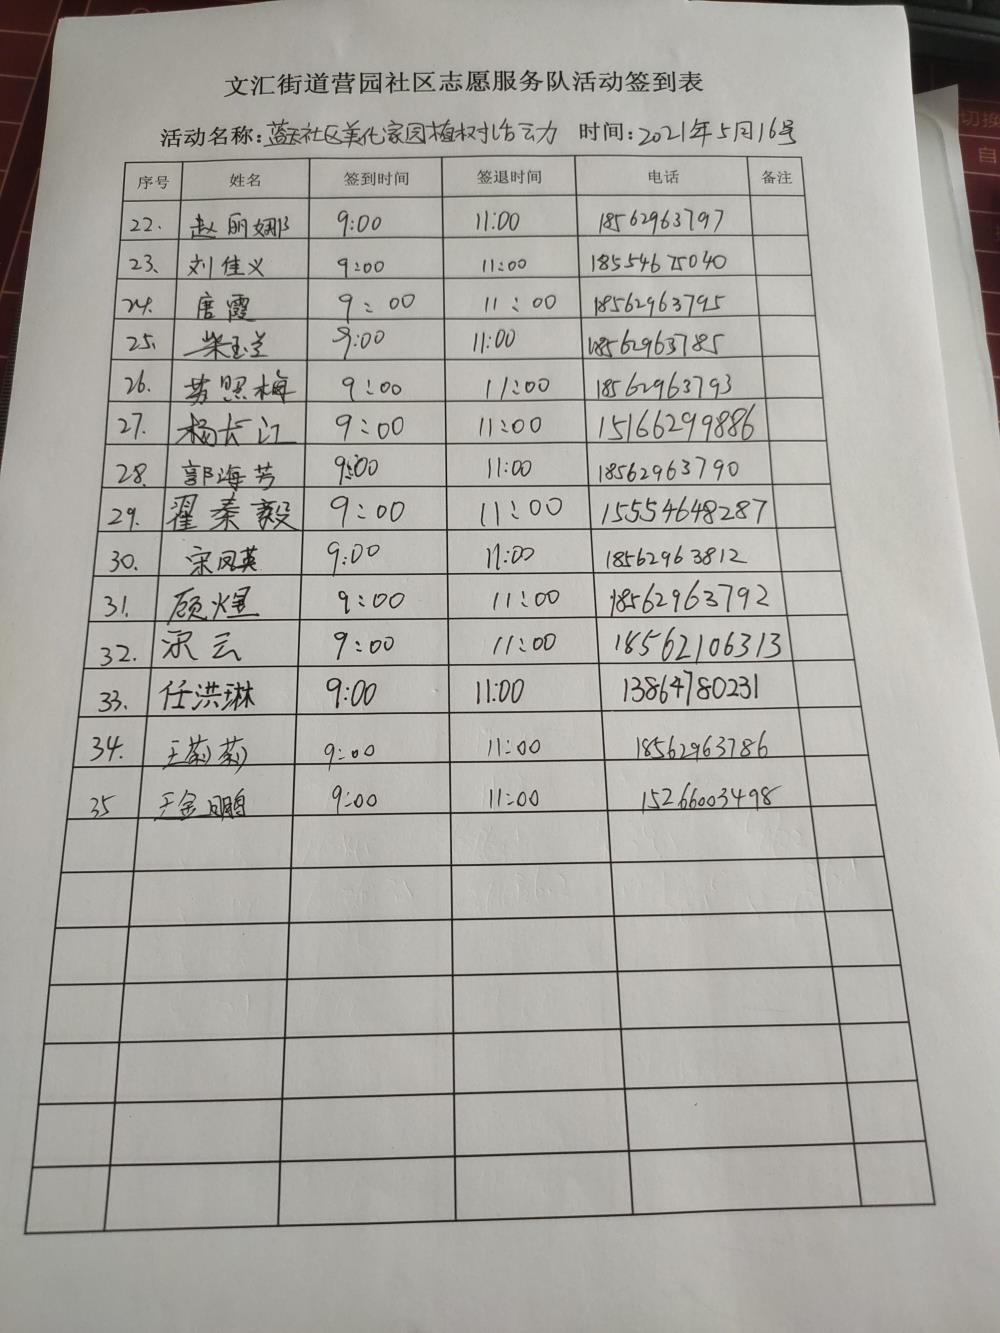 文汇街道营园社区志愿服务队活动签到表
活动名称:蓝天社区美化家园植树活动 时间:2021年5月16号
序号 姓名 签到时间 签退时间 电话 备注
22. 赵丽娜 9:00 11:00 18562963797
23. 刘佳义 9:00 11:00 18554675040
24. 唐霞 9:00 11:00 18562963795
25. 柴玉兰 9:00 11:00 18562963785
26. 苏照梅 9:00 11:00 18562963793
27. 杨长江 9:00 11:00 15166299886
28. 郭海芳 9:00 11:00 18562963790
29. 翟秦毅 9:00 11:00 15554648287
30. 宋凤英 9:00 11:00 18562963812
31. 顾煜 9:00 11:00 18562963792
32. 宋云 9:00 11:00 18562106313
33. 任洪琳 9:00 11:00 13864780231
34. 王莉莉 9:00 11:00 18562963786
35 王金鹏 9:00 11:00 15266003498
切换
自